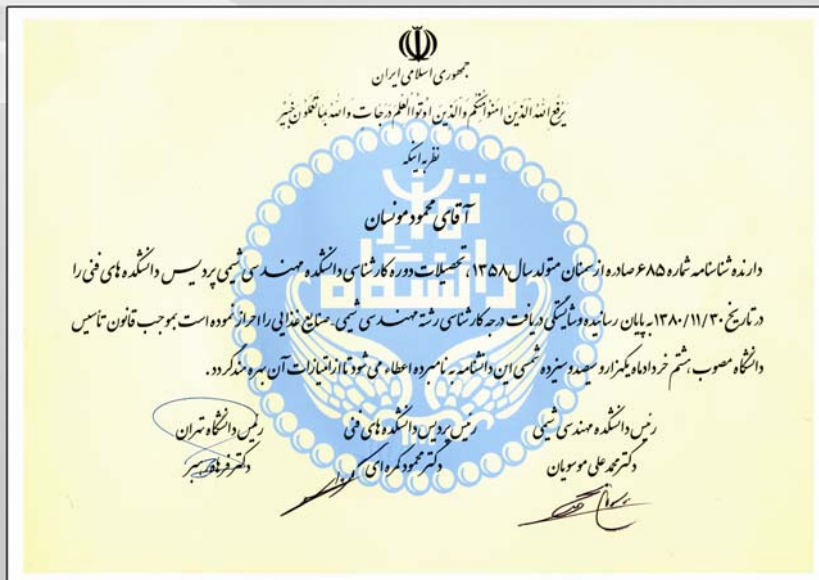 جمهوری اسلامی ایران
یرفع الله الذین امنوا منکم والذین اوتوا العلم درجات والله بما تعملون خبیر
نظر به اینکه
آقای محمود مونسان
دارنده شناسنامه شماره ۶۸۵ صادره از سمنان متولد سال ۱۳۵۸، تحصیلات دوره کارشناسی دانشکده مهندسی شیمی پردیس دانشکده های فنی را
در تاریخ ۱۳۸۰/۱۱/۳۰ به پایان رسانیده و شایستگی دریافت درجه کارشناسی رشته مهندسی شیمی - صنایع غذایی را احراز نموده است بموجب قانون تأسیس
دانشگاه مصوب هشتم خرداد ماه یکهزار و سیصد و سیزده شمسی این دانشنامه به نامبرده اعطاء می شود تا از امتیازات آن بهره مند گردد.
رئیس دانشکده مهندسی شیمی
دکتر محمد علی موسویان
رئیس پردیس دانشکده های فنی
دکتر محمود کمره ای
رئیس دانشگاه تهران
دکتر فرهاد رهبر
دانشگاه
تهران